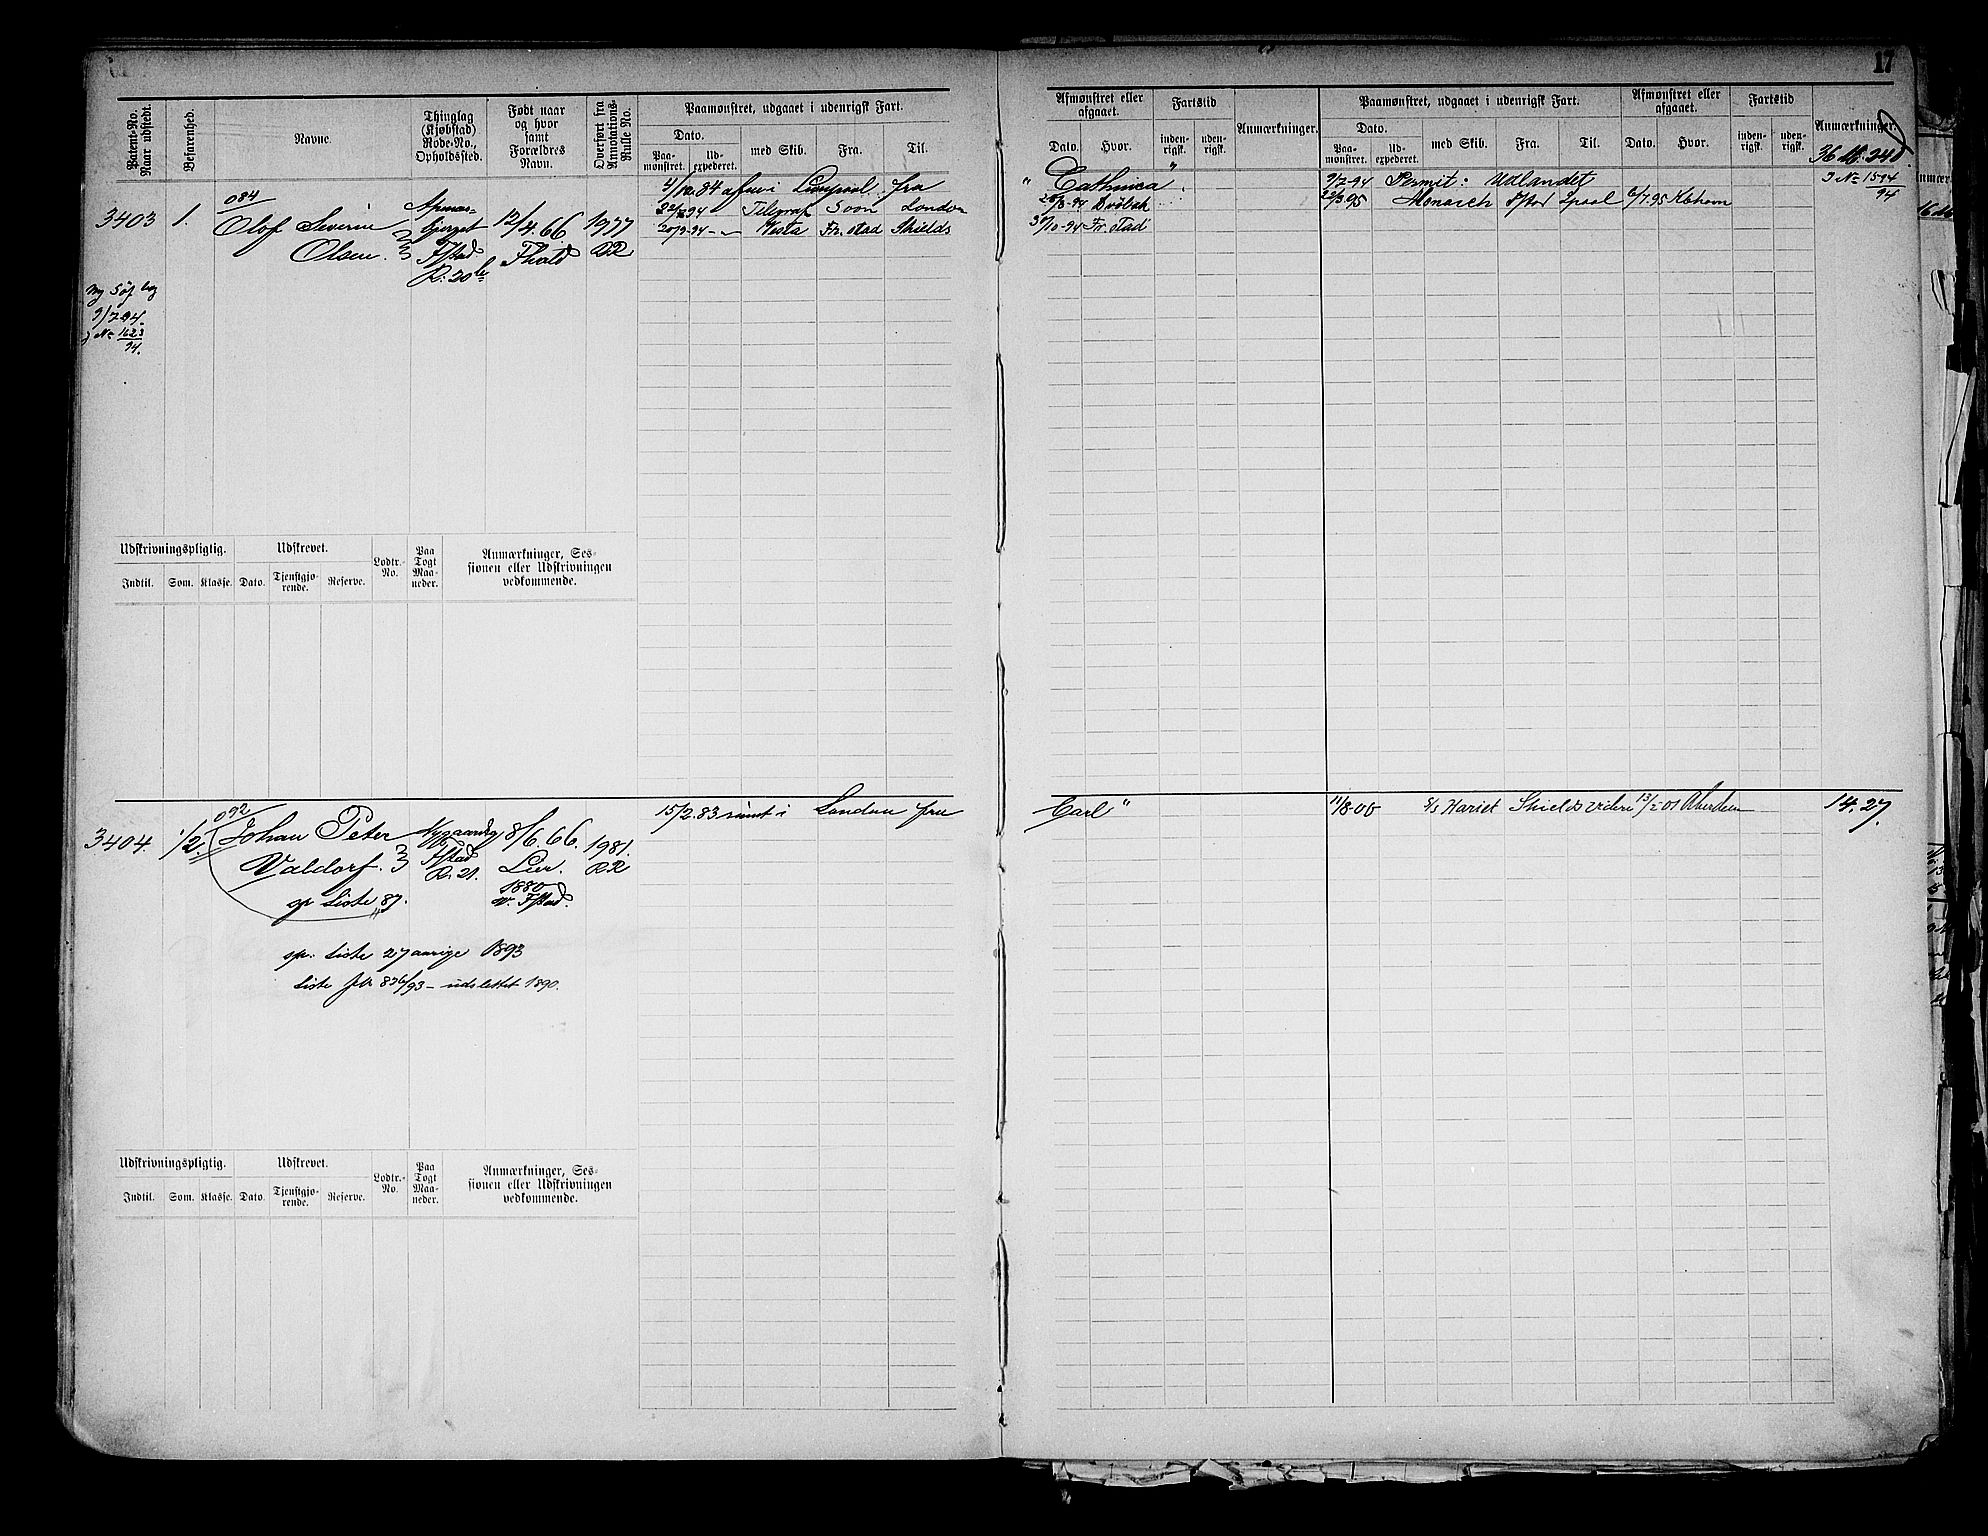 17
Patent-No. Naar udstedt.
Befarenhed.
Navne.
Thinglag (Kjøbstad) Rode-No., Opholdssted.
Født naar og hvor samt Forældres Navn.
Overført fra Annotations-Rulle No.
Paamønstret, udgaaet i udenrigsk Fart.
Dato.
Paa-mønstret.
Ud-expederet.
med Skib.
Fra.
Til.
Afmønstret eller afgaaet.
Dato.
Hvor.
Fartstid
inden-rigsk.
uden-rigsk.
Anmærkninger.
Paamønstret, udgaaet i udenrigsk Fart.
Dato.
Paa-mønstret.
Ud-expederet.
med Skib.
Fra.
Til.
Afmønstret eller afgaaet.
Dato.
Hvor.
Fartstid
inden-rigsk.
uden-rigsk.
Anmærkninger.
084
3403 1. Olof Severin Olsen. 3
Fstad R. 20b
13/4.66 Fhald
1977 RR
9/7 94.
No 1623/94.
4/12.84 Liverpool fra "Cathinca"
22/2 94 Telegraf Soon London
20/9-94 - Vesta Fr.stad Shields
Drøbak
3/10-94 Fr.stad
9/7-94 Permit: Udlandet
Monarch Fstad 6/7.95 Kbhavn
J No 1594/94
Udskrivningspligtig.
Indtil. Som. Klasse.
Udskrevet.
Dato. Tjenstgjø-rende. Reserve.
Lodtr.-No.
Paa Togt Maa-neder.
Anmærkninger, Ses-sionen eller Udskrivningen vedkommende.
092
3404. 1/2. Johan Peter Valdorf. 3
gr Liste 87.
Fstad R. 21.
8/6.66. Lier. 1880 v. Fstad.
1981. RR
15/2.83 rømt i London fra "Carl"
11/8-00 S/s Hariet Shields videre 13/2-01 Aberdeen
14.27.
spr. Liste 27 aarige 1893
Liste Jr. 836/93 - udslettet 1890.
Udskrivningspligtig.
Indtil. Som. Klasse.
Udskrevet.
Dato. Tjenstgjø-rende. Reserve.
Lodtr.-No.
Paa Togt Maa-neder.
Anmærkninger, Ses-sionen eller Udskrivningen vedkommende.